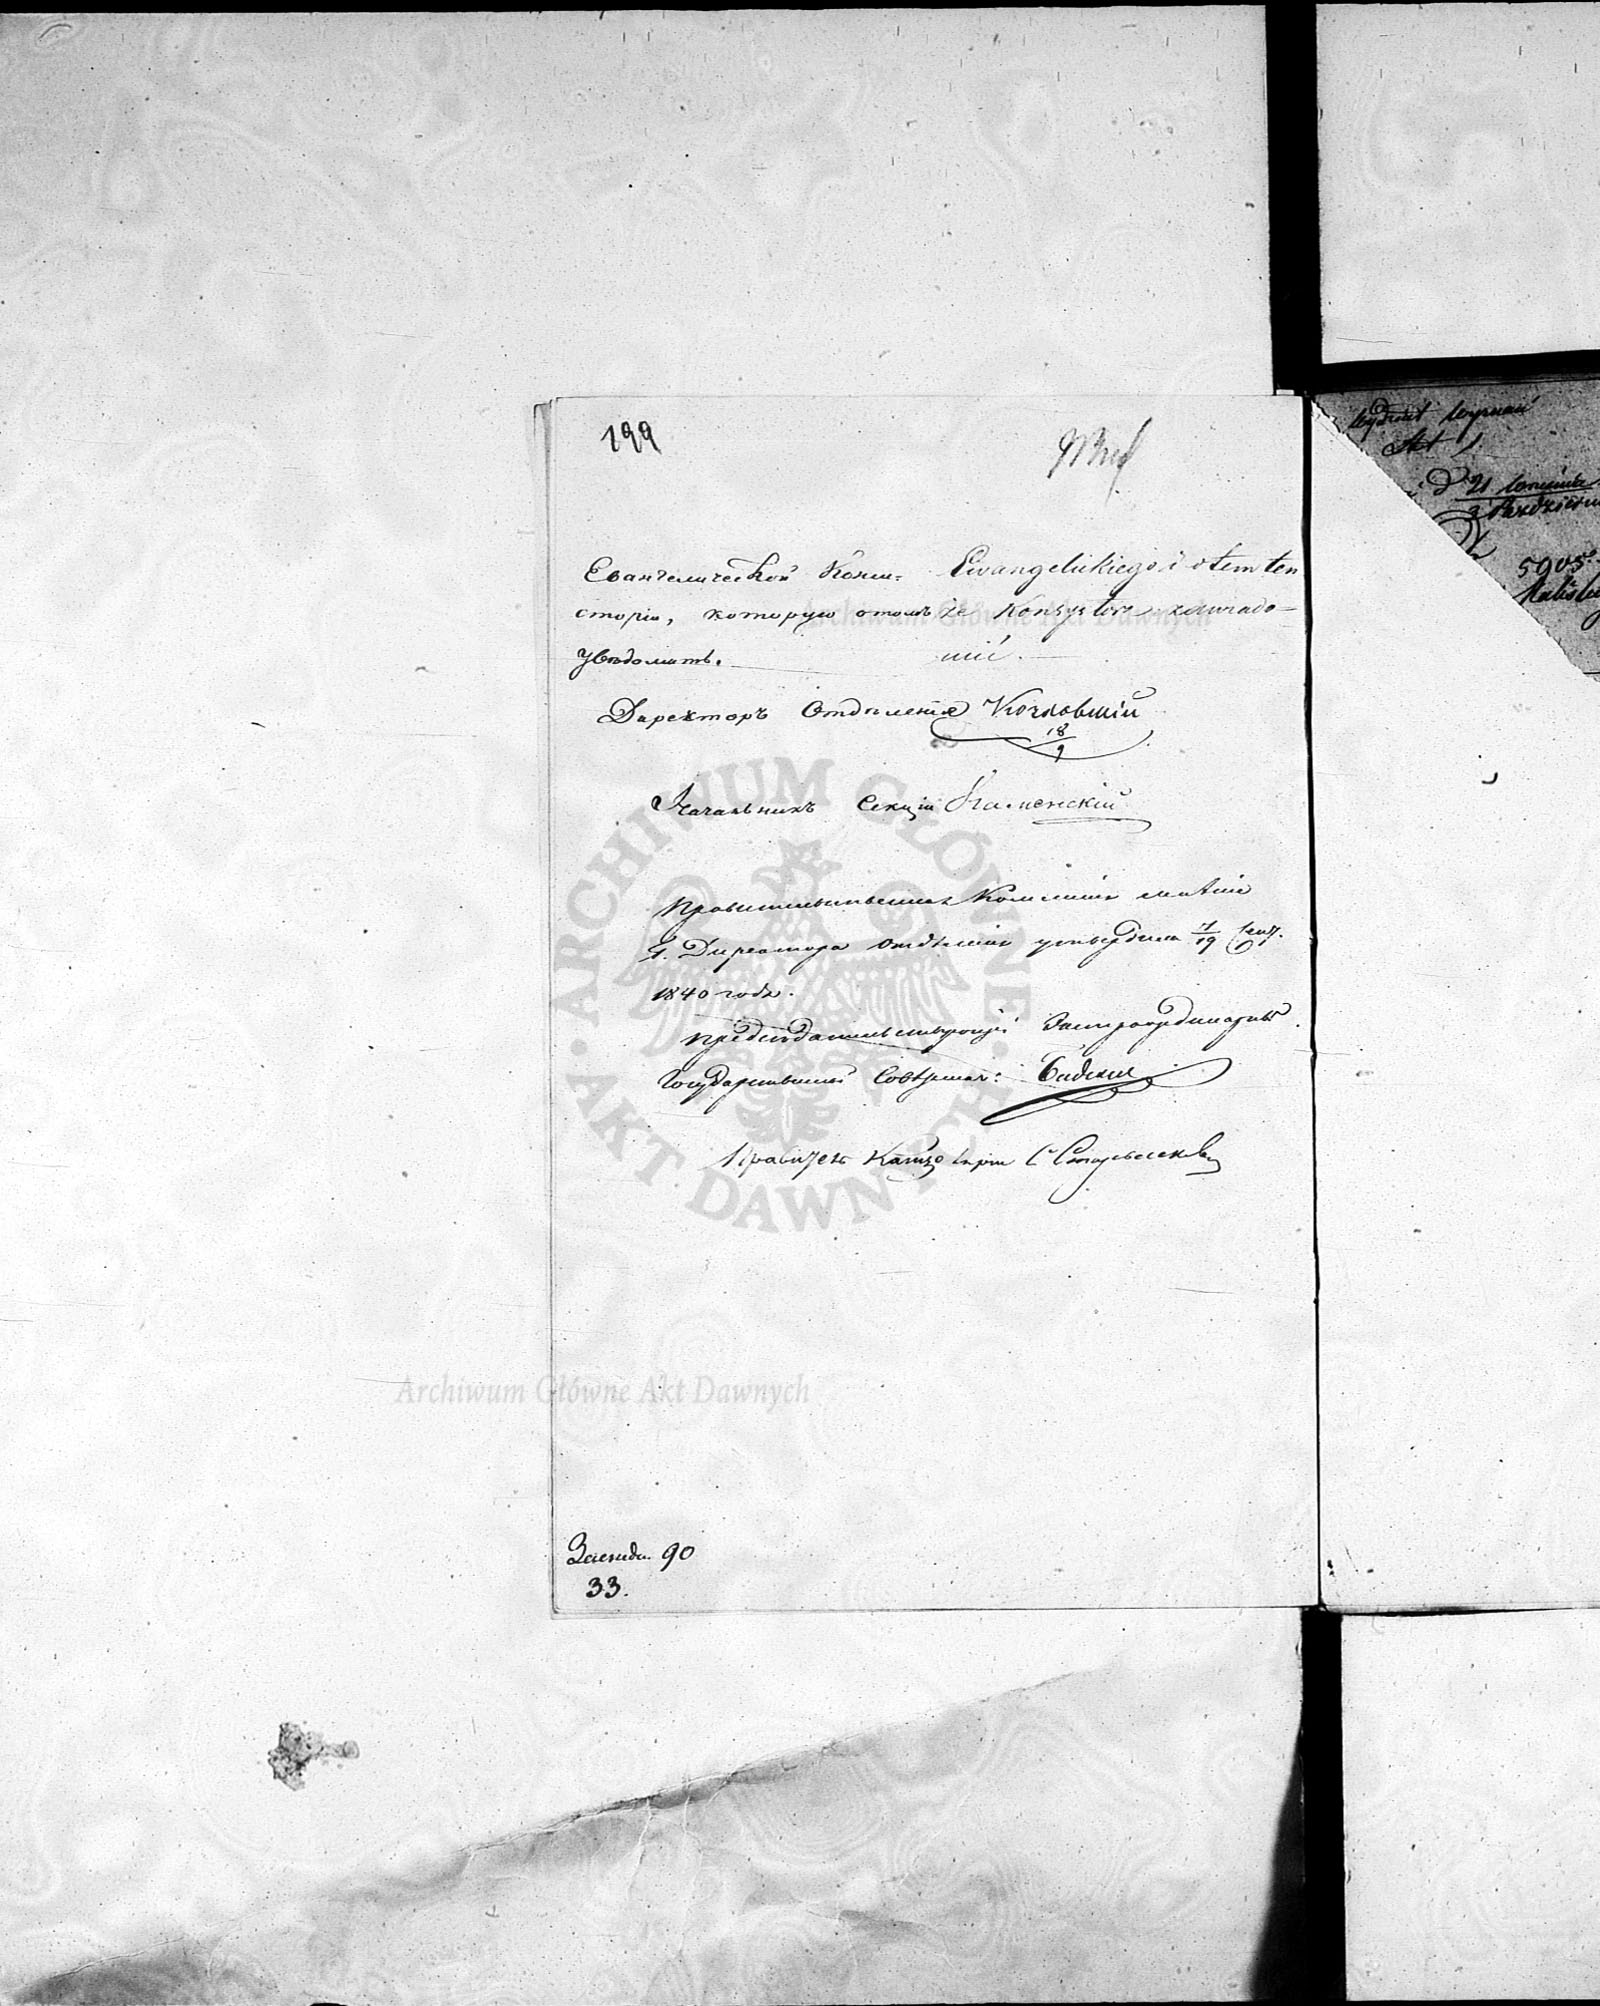 199
Евангелической Конси-
сторіи, которую о томъ
увѣдомить.
Ewangelickiego i o tem ten
że Konsystorz zawiado-
mić.
Директоръ Отдѣленія Козловскій
18/9
Начальникъ Секціи Каменскій
Правительственная Коммисія мнѣніе
Г. Директора Отдѣленія утвердила 7/19 Сент.
1840 года.
Предсѣдательствующій Экстраординарный
Государственный Совѣтникъ:
Правитель Канцеляріи
90
33.
Akt
21
5905
ARCHIWUM GŁÓWNE AKT DAWNYCH
Archiwum Główne Akt Dawnych
Archiwum Główne Akt Dawnych